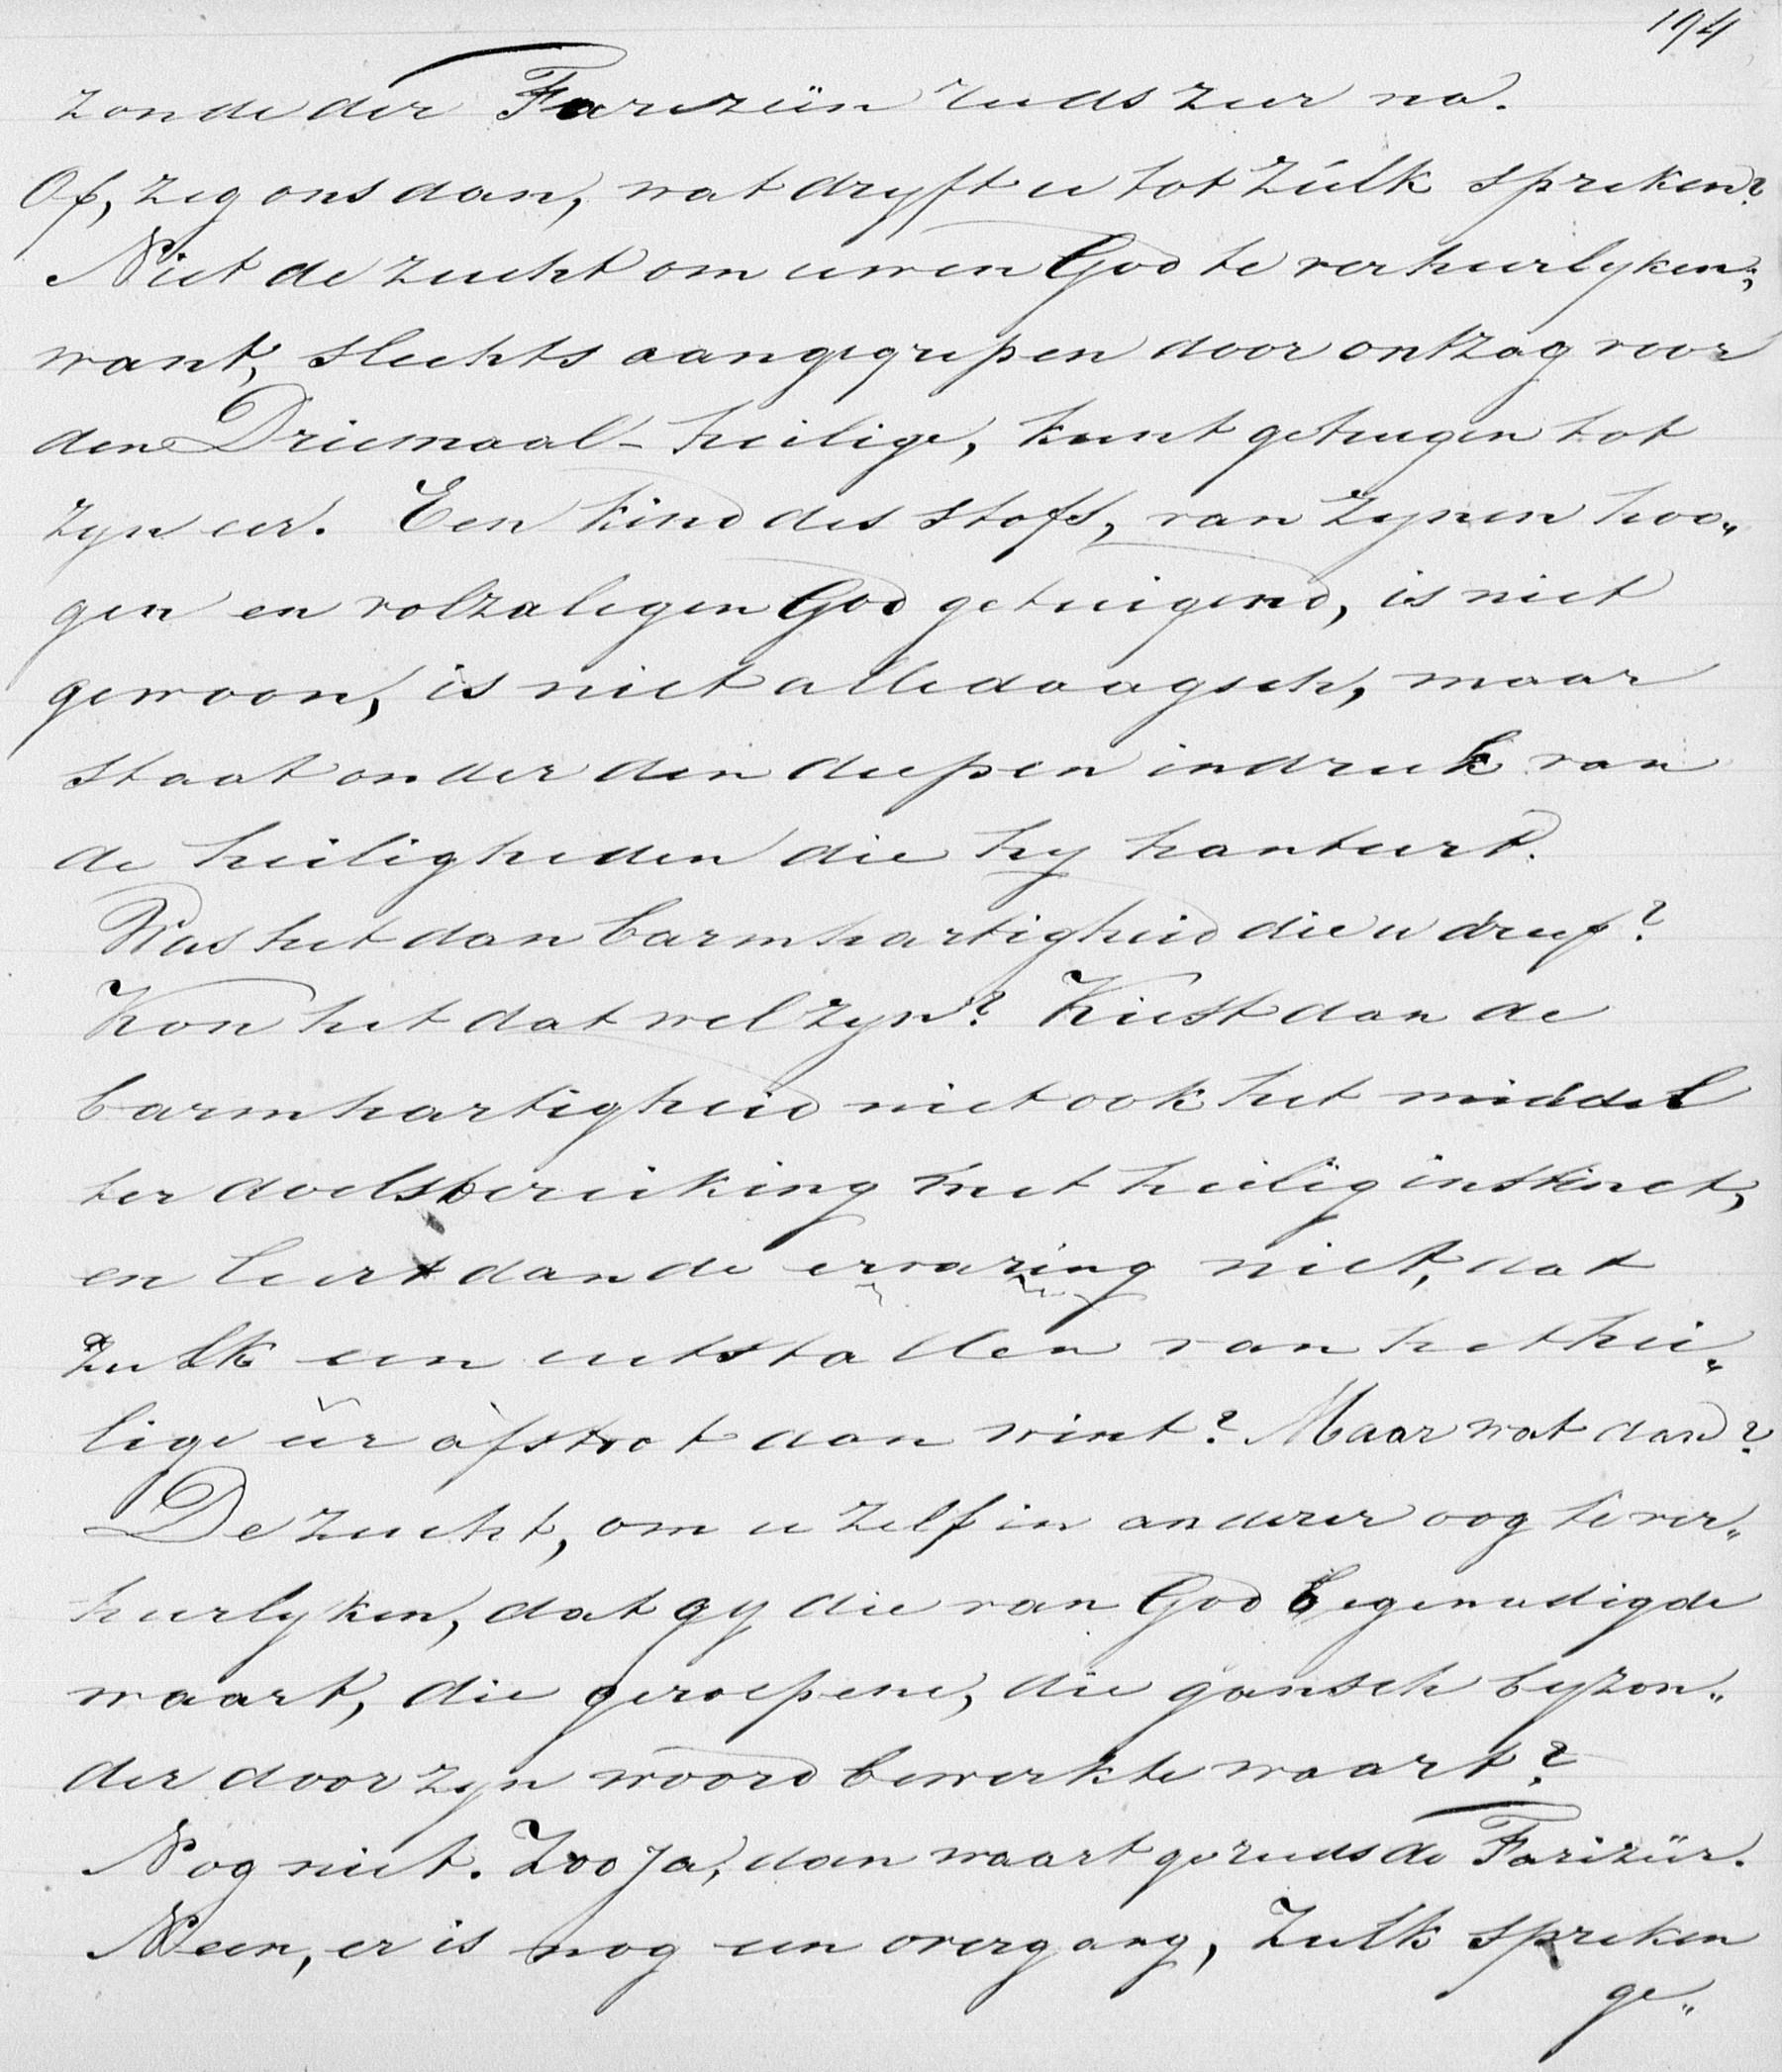 194
zonde der Farizeën reeds zeer na.
Of, zeg ons dan, wat dryft u tot zúlk spreken?
Niet de zucht om uwen God te verheerlyken;
want, slechts aangegrepen door ontzag voor
den Driemaal-heilige, kunt getuigen tot
zyn eer. Een kind des stofs, van zynen hoo„
gen en volzaligen God getuigend, is niet
gewoon, is niet alledaagsch, maar
staat onder den diepen indruk van
de heiligheden die hy hanteert.
Was het dan barmhartigheid die u dreef?
Kon het dat wel zyn? Kiest dan de
barmhartigheid niet ook het middel
ter doelsbereiking met heilig instinct,
en leert dan de ervaring niet, dat
zulk een uitstallen van het hei„
lige eêr àfstoot dan wint? Maar wat dan?
De zucht, om u zelf in anderer oog te ver„
heerlyken, dat gy die van God begenadigde
waart, die geroepene, die gansch byzon„
der door zyn woord bewerkte waart?
Nog niet. Zoo ja, dan waart ge reeds de Farizeër.
Neen, er is nog een overgang, Zulk spreken
ge„